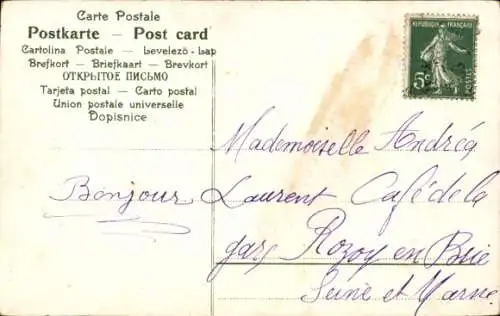 Carte Postale
Postkarte – Post card
Cartolina Postale – Levelezö-Lap
Brefkort – Briefkaart – Brevkort
ОТКРЫТОЕ ПИСЬМО
Tarjeta postal – Carto postal
Union postale universelle
Dopisnice
REPUBLIQUE FRANÇAISE
5c
POSTES
Mademoiselle Andréa
Bonjour
Laurent Café de la
gare Rozoy en Brie
Seine et Marne